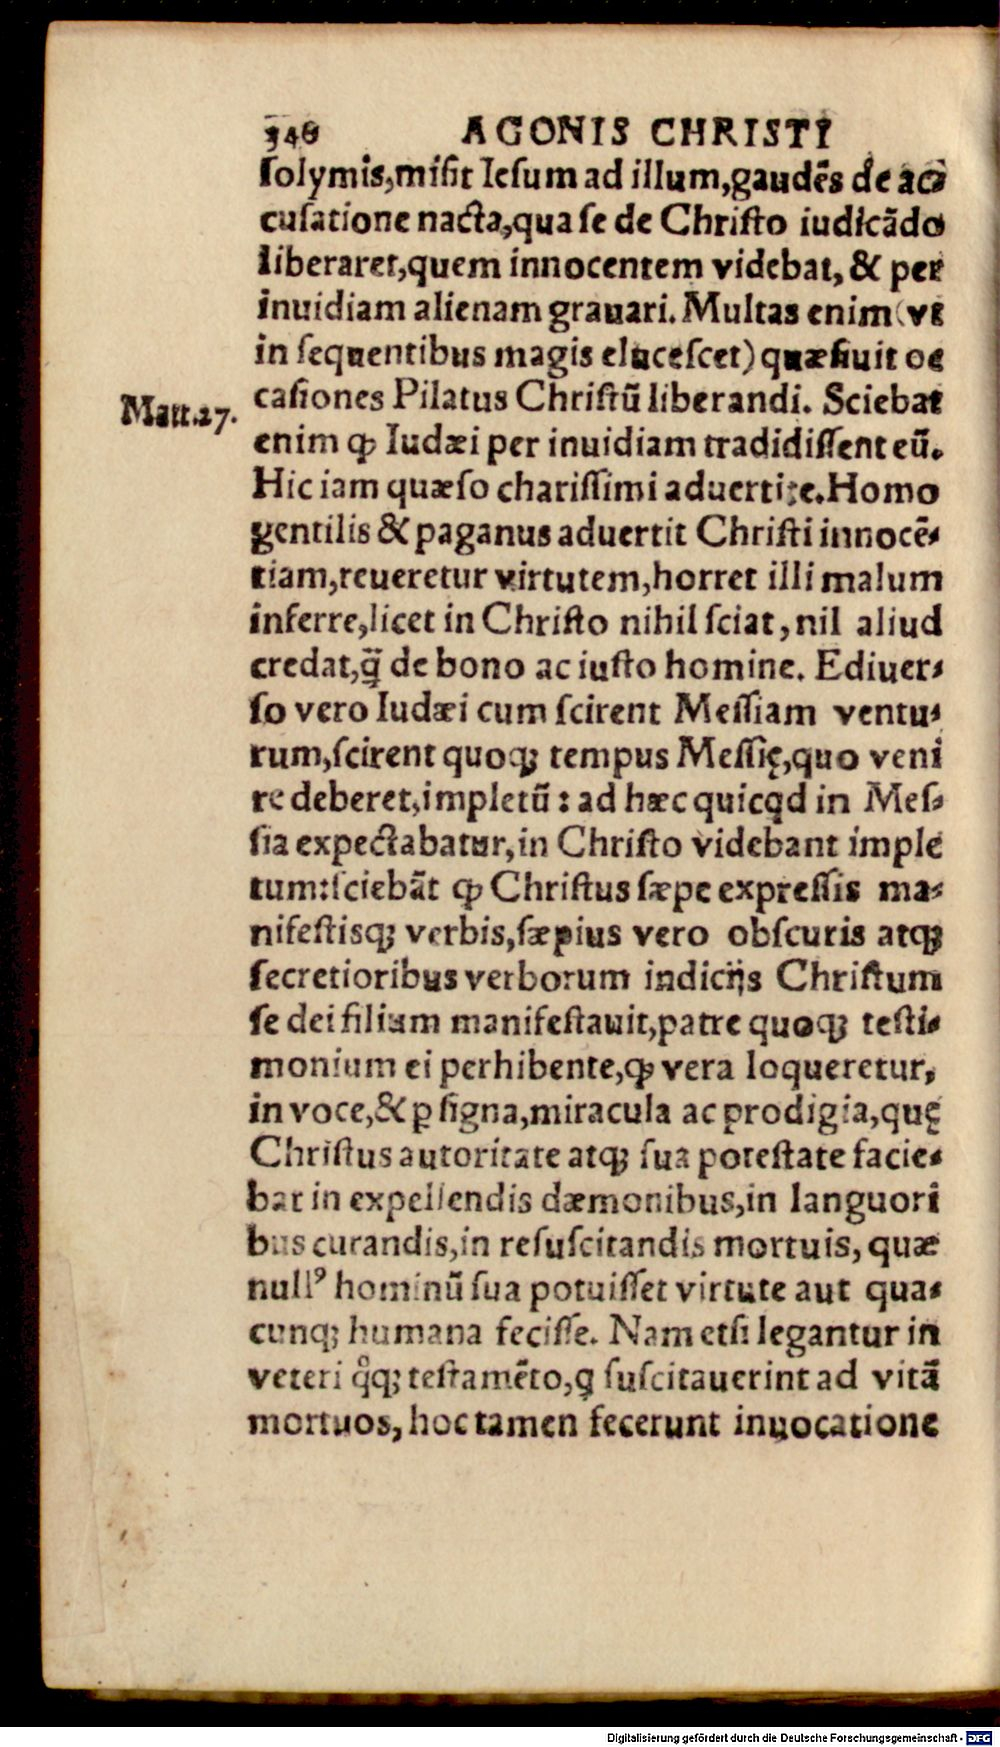 348 AGONIS CHRISTI
solymis,misit Iesum ad illum,gaudẽs de ac
cusatione nacta,qua se de Christo iudicãdo
liberaret,quem innocentem videbat, & per
inuidiam alienam grauari. Multas enim (vt
in sequentibus magis elucescet) quæsiuit oc
casiones Pilatus Christũ liberandi. Sciebat
Matt.27.
enim ꝙ Iudæi per inuidiam tradidissent eũ.
Hic iam quæso charissimi aduertite. Homo
gentilis & paganus aduertit Christi innocẽ-
tiam,reueretur virtutem,horret illi malum
inferre,licet in Christo nihil sciat, nil aliud
credat,q̃ de bono ac iusto homine. Ediuer-
so vero Iudæi cum scirent Messiam ventu-
rum,scirent quoq; tempus Messię,quo veni
re deberet,impletũ: ad hæc quicqd in Mes-
sia expectabatur,in Christo videbant imple
tum:sciebãt ꝙ Christus sæpe expressis ma-
nifestisq; verbis,sæpius vero obscuris atq;
secretioribus verborum indicijs Christum
se dei filium manifestauit,patre quoq; testi-
monium ei perhibente,ꝙ vera loqueretur,
in voce,& ꝑ signa,miracula ac prodigia,quę
Christus autoritate atq; sua potestate facie-
bat in expellendis dæmonibus,in languori
bus curandis,in resuscitandis mortuis, quæ
nullꝰ hominũ sua potuisset virtute aut qua-
cunq; humana fecisse. Nam etsi legantur in
veteri qͦq; testamẽto,ꝗ suscitauerint ad vitã
mortuos, hoc tamen fecerunt inuocatione
Digitalisierung gefördert durch die Deutsche Forschungsgemeinschaft - DFG